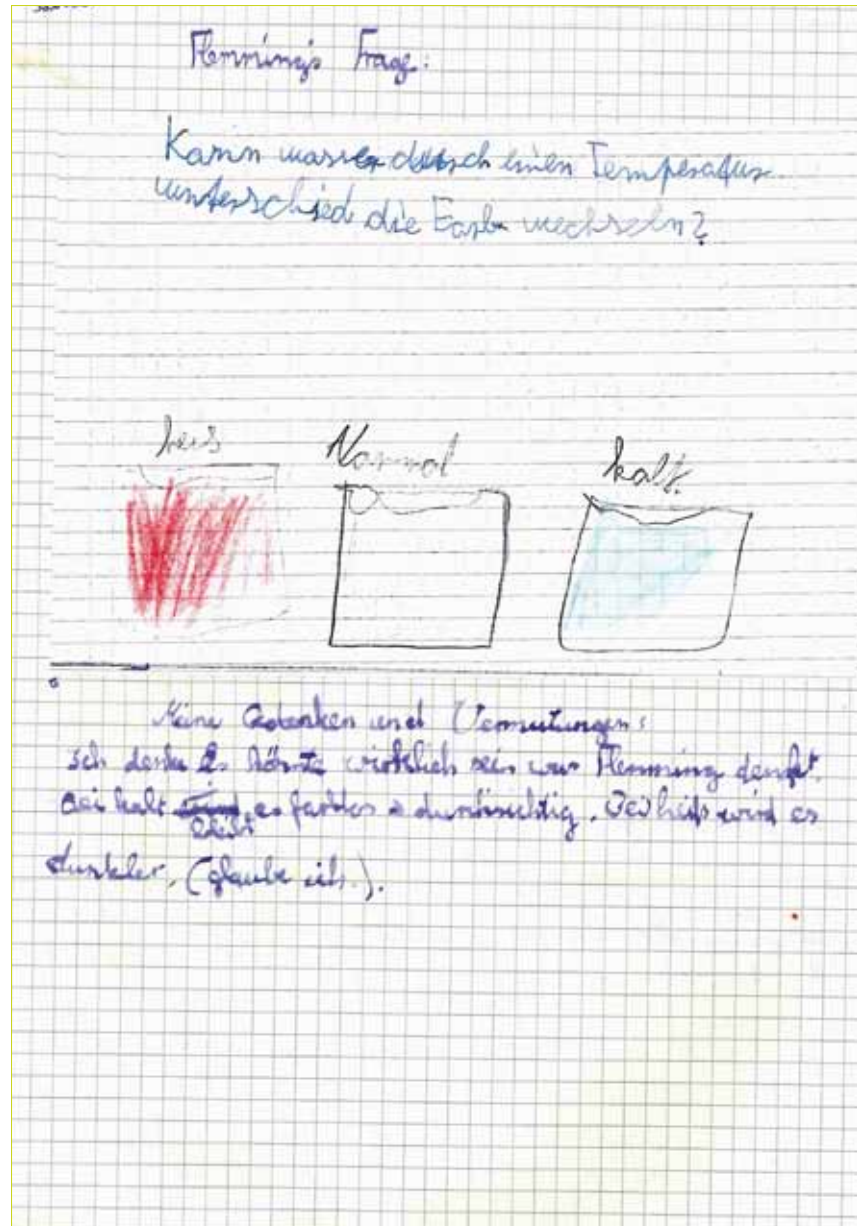 Flemming's Frage:
Kann wasser durch einen Temperatur-
unterschied die Farbe wechseln?
heis
Normal
kalt.
Meine Gedanken und Vermutungen:
Ich denke Es könnte wirklich sein was Flemming denkt.
Bei kalt wird bleibt es farblos = durchsichtig. Bei heiß wird es
dunkler, (glaube ich.).